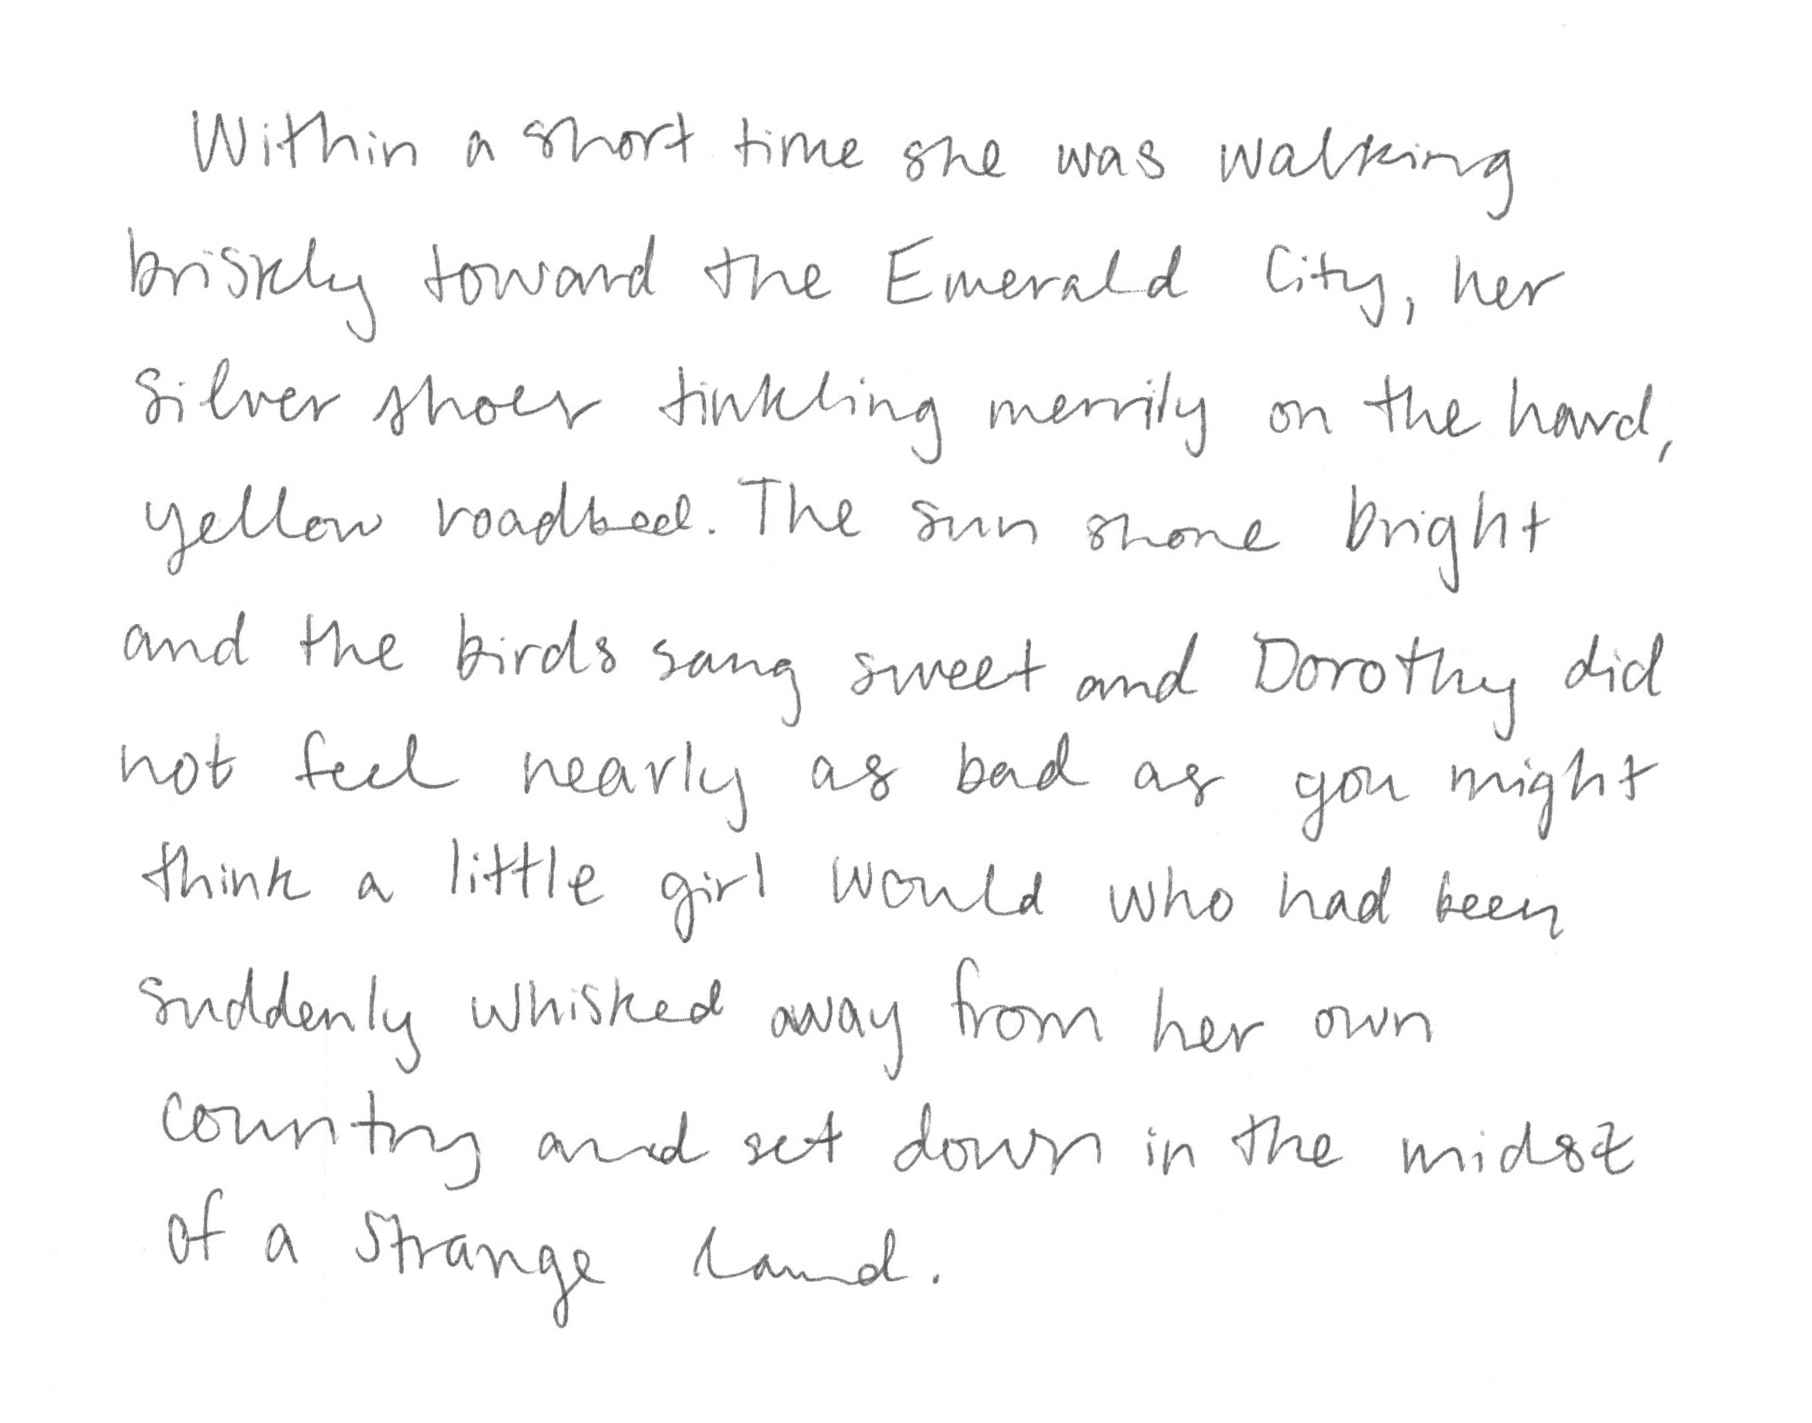 Within a short time she was walking
briskly toward the Emerald City, her
silver shoes tinkling merrily on the hard,
yellow roadbed. The sun shone bright
and the birds sang sweet and Dorothy did
not feel nearly as bad as you might
think a little girl would who had been
suddenly whisked away from her own
country and set down in the midst
of a strange land.